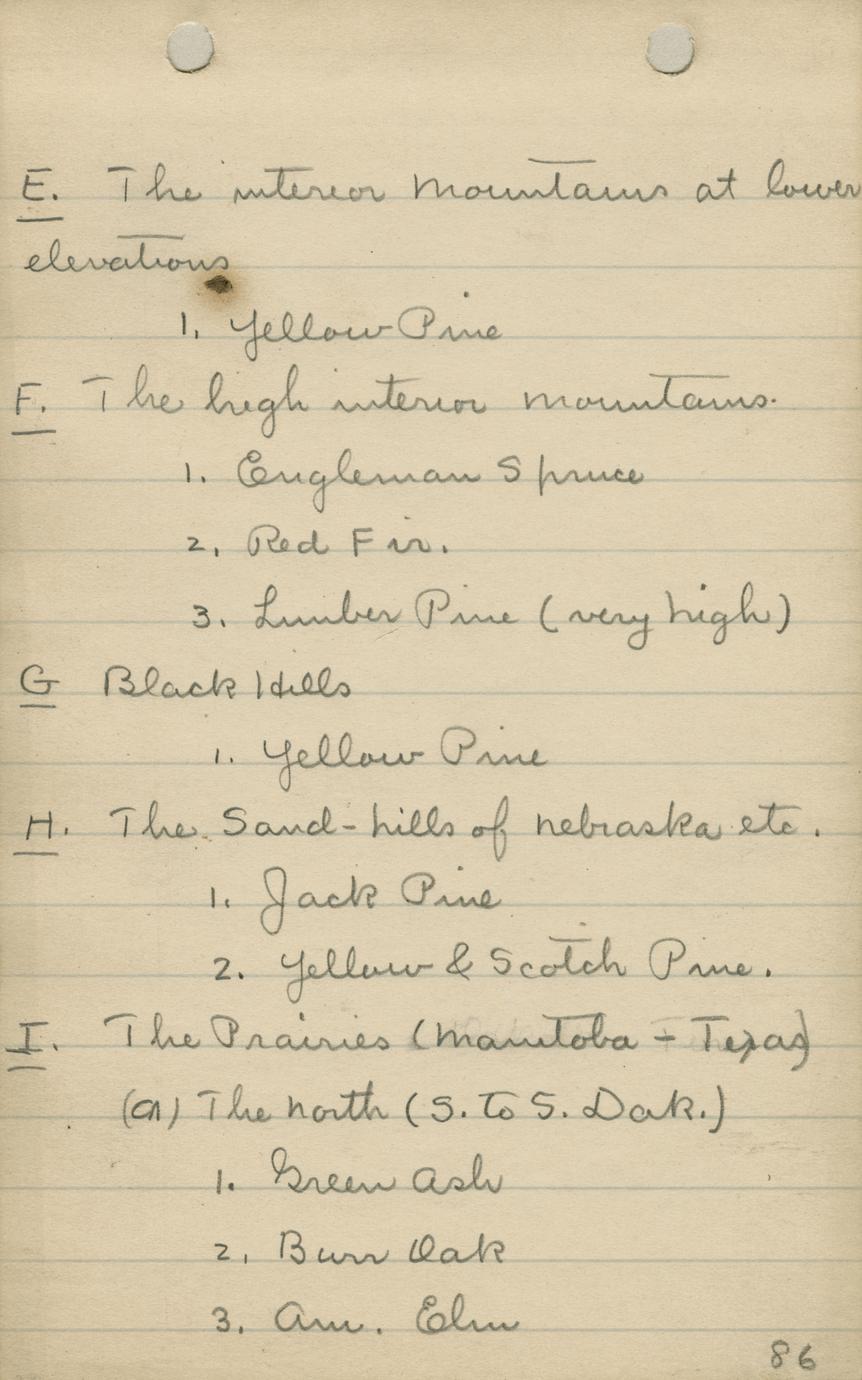 E. The interior mountains at lower
elevations
1. Yellow Pine
F. The high interior mountains.
1. Engleman Spruce
2. Red Fir.
3. Limber Pine (very high)
G Black Hills
1. Yellow Pine
H. The Sand-hills of Nebraska etc.
1. Jack Pine
2. Yellow & Scotch Pine.
I. The Prairies (Manitoba - Texas)
(a) The North (S. to S. Dak.)
1. Green Ash
2. Burr Oak
3. Am. Elm
86